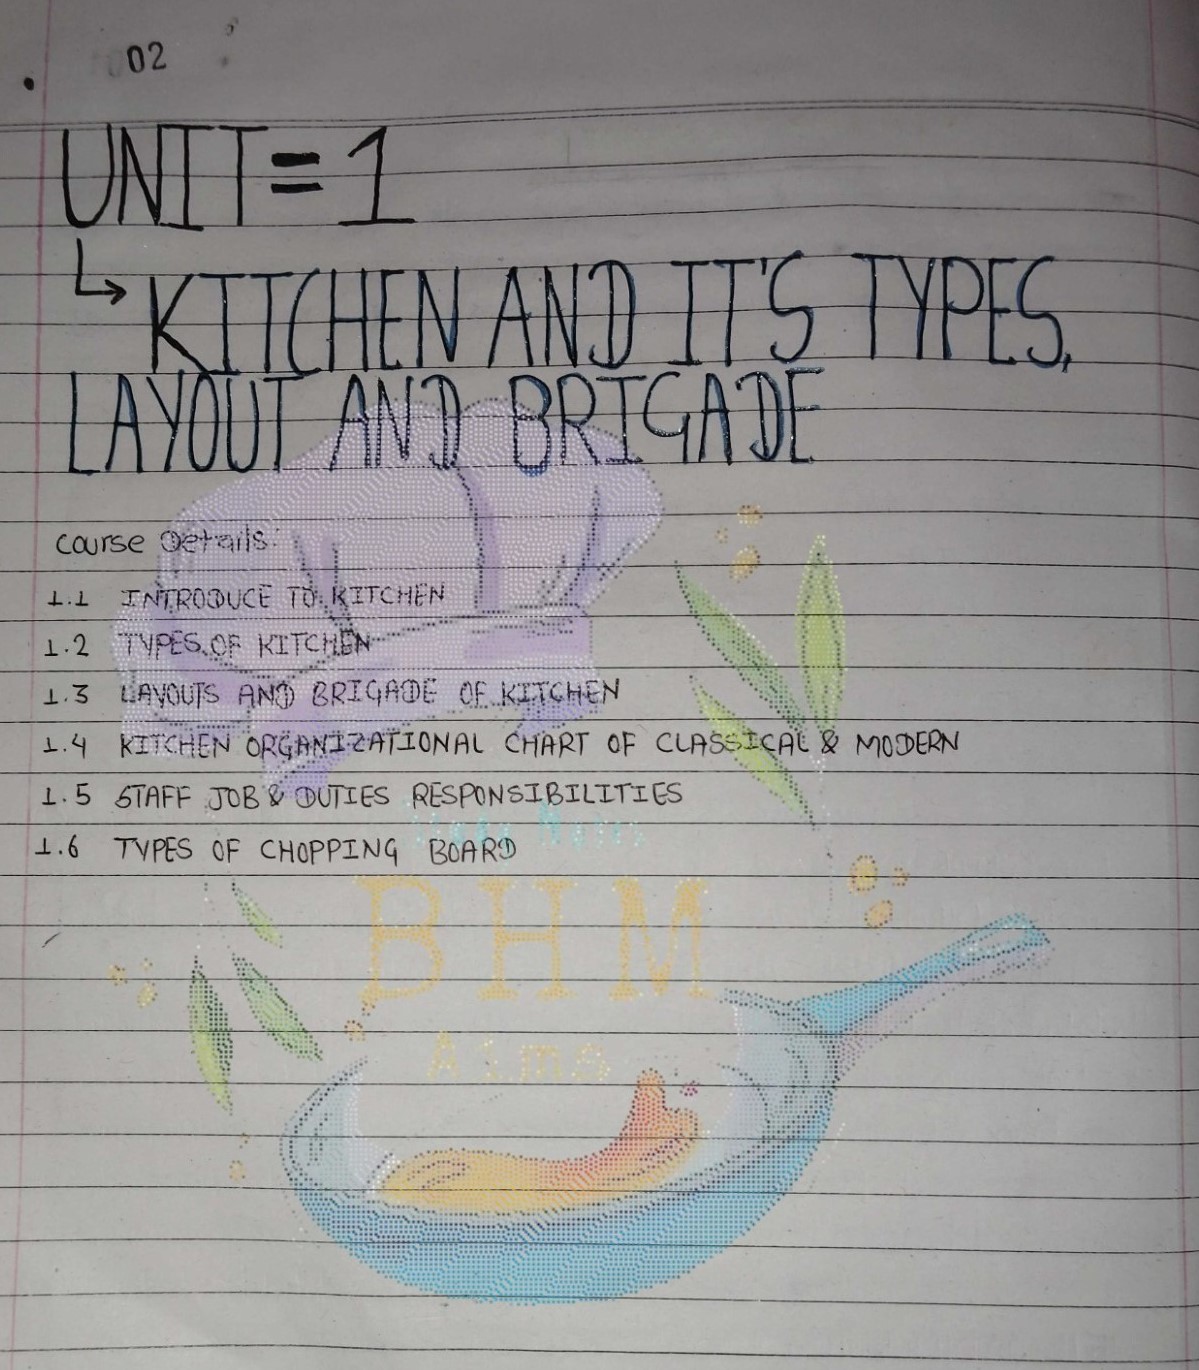 02
UNIT = 1
↳ KITCHEN AND IT'S TYPES,
LAYOUT AND BRIGADE
Course Details:
1.1 INTRODUCE TO KITCHEN
1.2 TYPES OF KITCHEN
1.3 LAYOUTS AND BRIGADE OF KITCHEN
1.4 KITCHEN ORGANIZATIONAL CHART OF CLASSICAL & MODERN
1.5 STAFF JOB & DUTIES RESPONSIBILITIES
1.6 TYPES OF CHOPPING BOARD
Notes
BHM
Aims